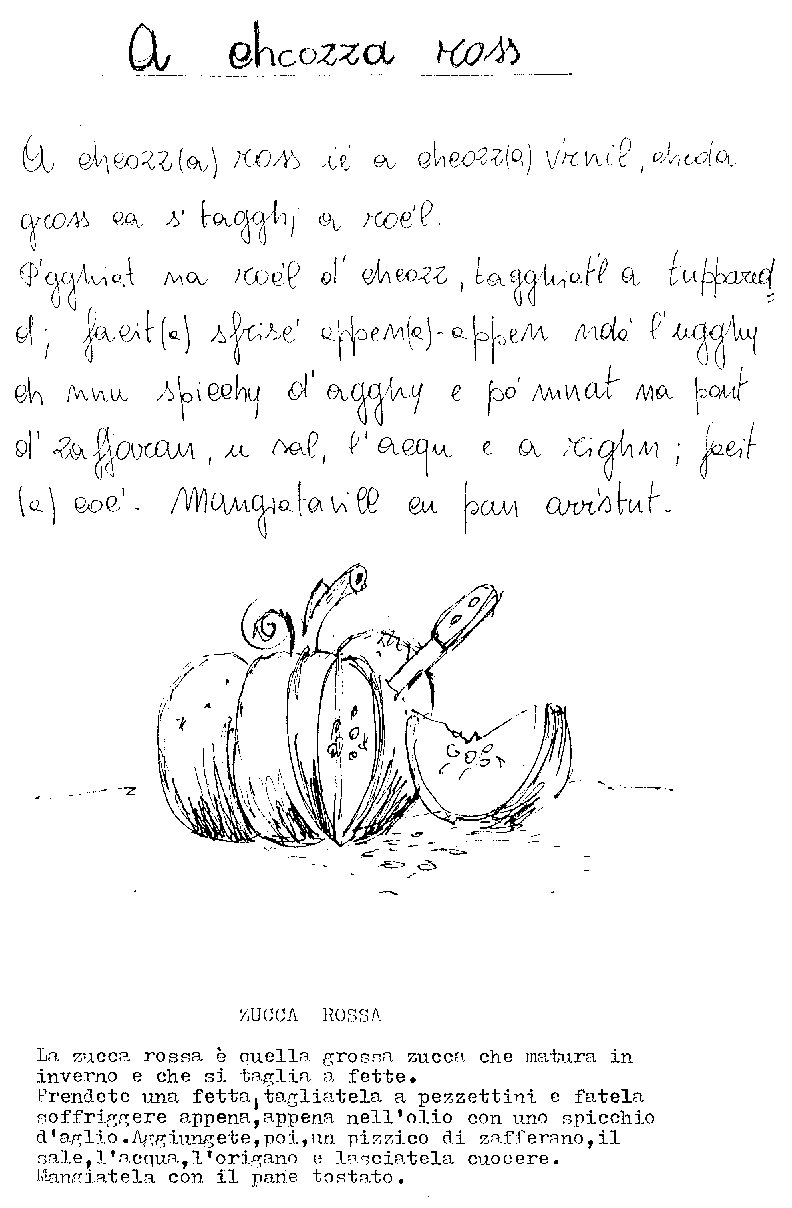 A chcozza ross
A checozz(a) ross ié a checozz(a) v'rnil, cheda
gross ca s' tagghj a roél.
P'gghiat na roél d' checozz, tagghiat'l a tuppared
d; facit(a) sfrisé appen(a)-appen ndó l'ugghy
ch nnu spicchy d'agghy e pó mnat na pont
d' zaffaran, u sal, l'acqu e a righn; facit
(a) coé. Mangiatavill cu pan arr'stut.
ZUCCA ROSSA
La zucca rossa è quella grossa zucca che matura in
inverno e che si taglia a fette.
Prendete una fetta,tagliatela a pezzettini e fatela
soffriggere appena,appena nell'olio con uno spicchio
d'aglio.Aggiungete,poi,un pizzico di zafferano,il
sale,l'acqua,l'origano e lasciatela cuocere.
Mangiatela con il pane tostato.